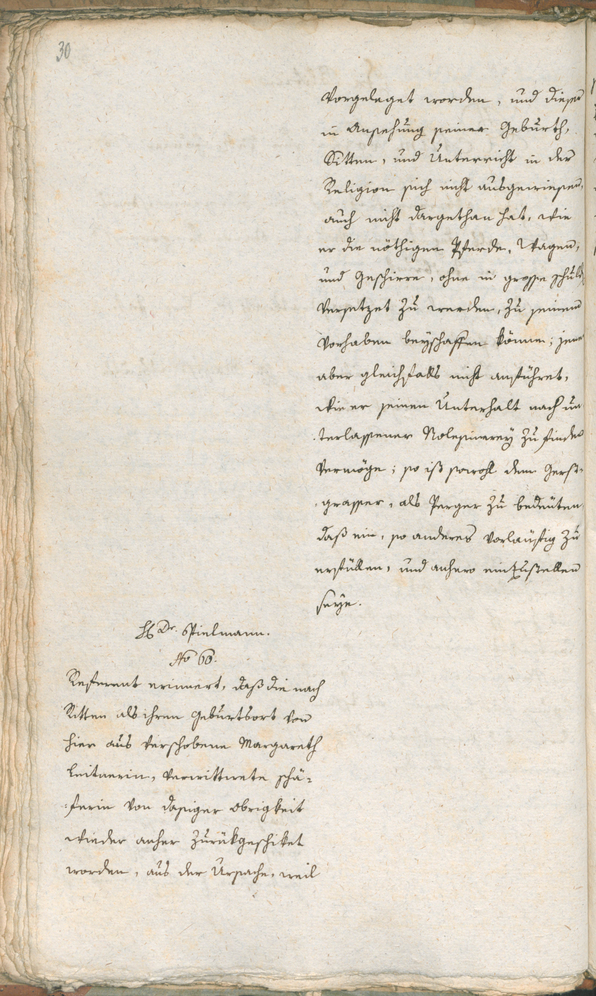 30
Vorgeleget worden, und dieser
in Ansehung seiner Geburth,
Sitten, und Unterricht in der
Religion sich nicht ausgewiesen,
auch nicht dargethan hat, wie
er die nöthigen Pferde, Wagen,
und Geschirre, ohne in grosse schuld
Versetzet zu werden, zu seinem
Vorhaben beyschaffen könne; jener
aber gleichfalls nicht anführet,
wie er seinen Unterhalt nach un
terlassener zu finden
Vermöge; so ist sowohl dem Gerst-
grasser, als Perger zu bedeüten
daß ein, so anderes Vorlaüfig zu
erfüllen, und anhero einzustellen
seye.
H Dr. Spielmann.
No 60.
Referent erinnert, daß die nach
Ritten als ihren Geburtsort von
hier aus Verschobene Margareth
Leitnerin, Verwittwete schä-
ferin von dasiger Obrigkeit
wieder anher zurükgeschiket
worden, aus der Ursache, weil